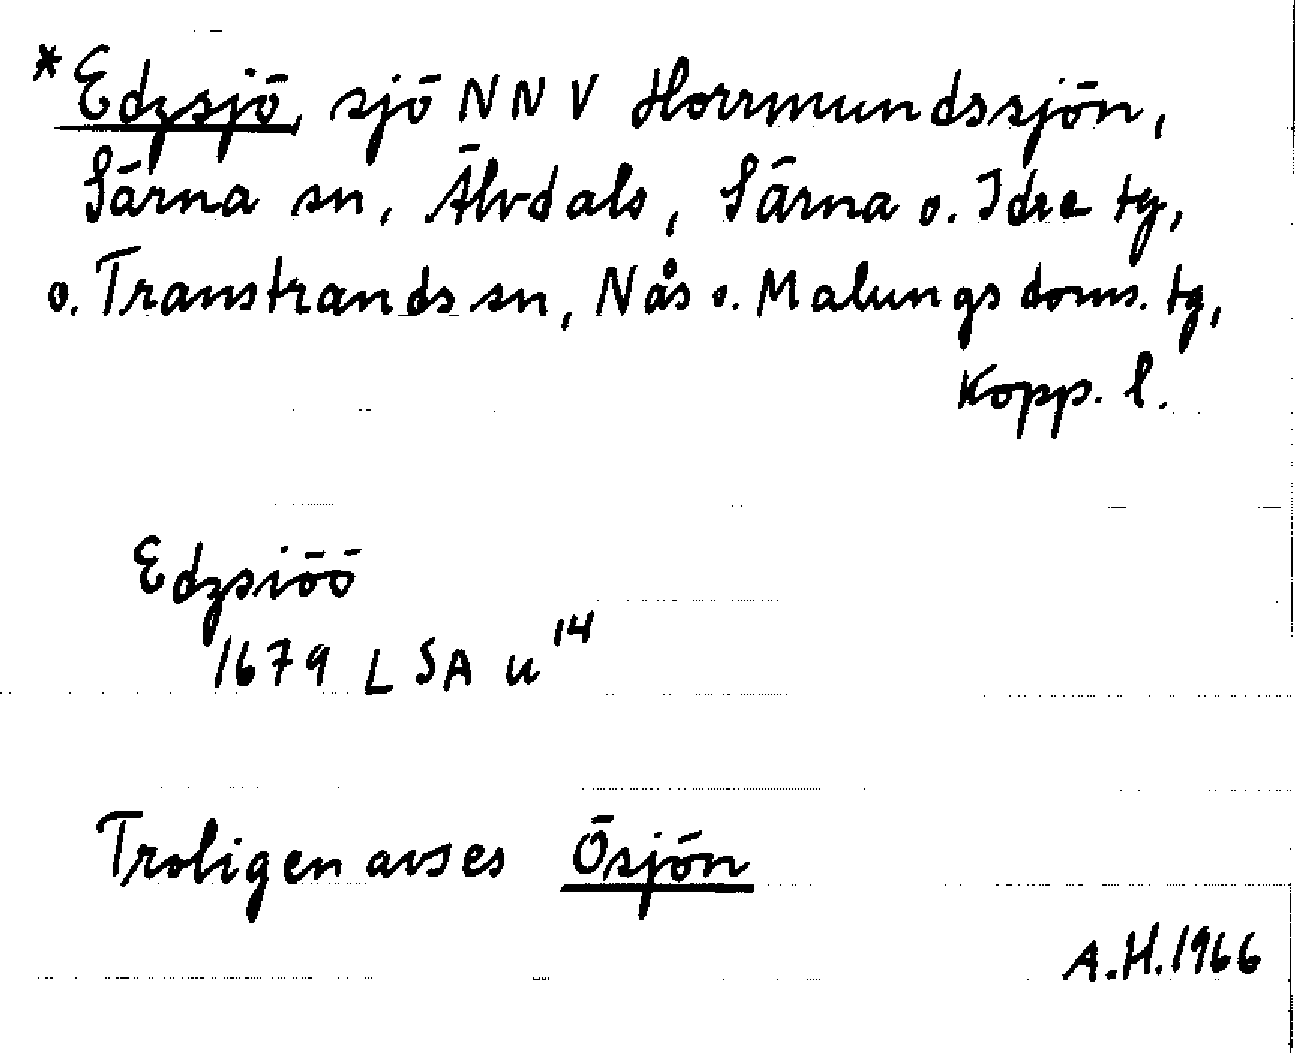 *Edzsjö, sjö NNV Horrmundssjön,
Särna sn, Älvdals, Särna o. Idre tg,
o. Transtrands sn, Nås o. Malungs doms. tg,
Kopp. l.
Edzsiöö
1679 LSA u¹⁴
Troligen avses Ösjön
A.H.1966